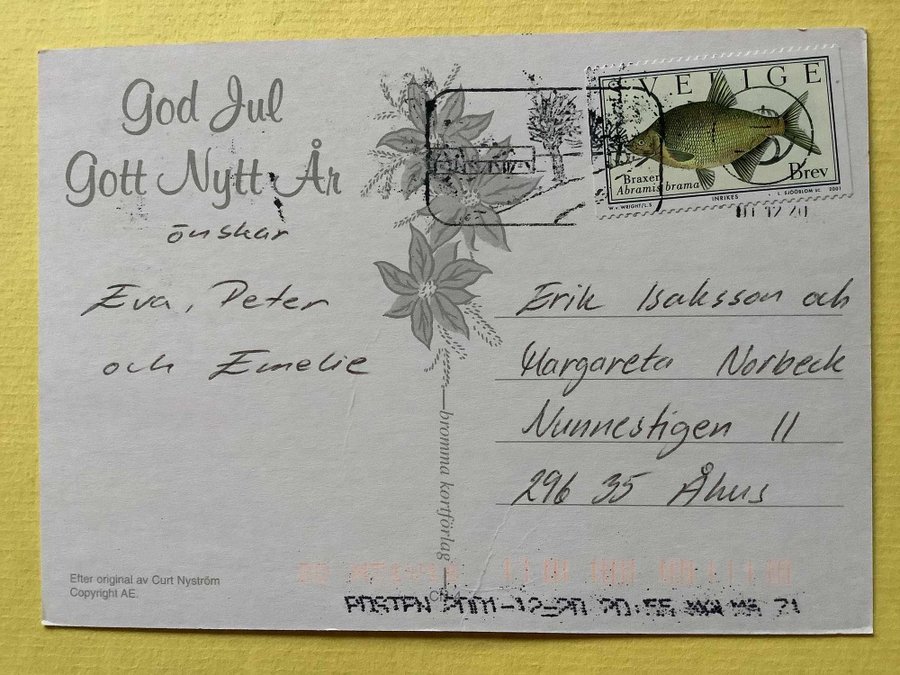 God Jul
Gott Nytt År
önskar
Eva, Peter
och Emelie
Efter original av Curt Nyström
Copyright AE.
bromma kortförlag
SVERIGE
Braxen
Abramis brama
Brev
W.v. WRIGHT/L.S
INRIKES
L. SJÖÖBLOM SC. 2001
01 12 20
Erik Isaksson och
Margareta Norbeck
Nunnestigen 11
296 35 Åhus
POSTEN 2001-12-20 20:55